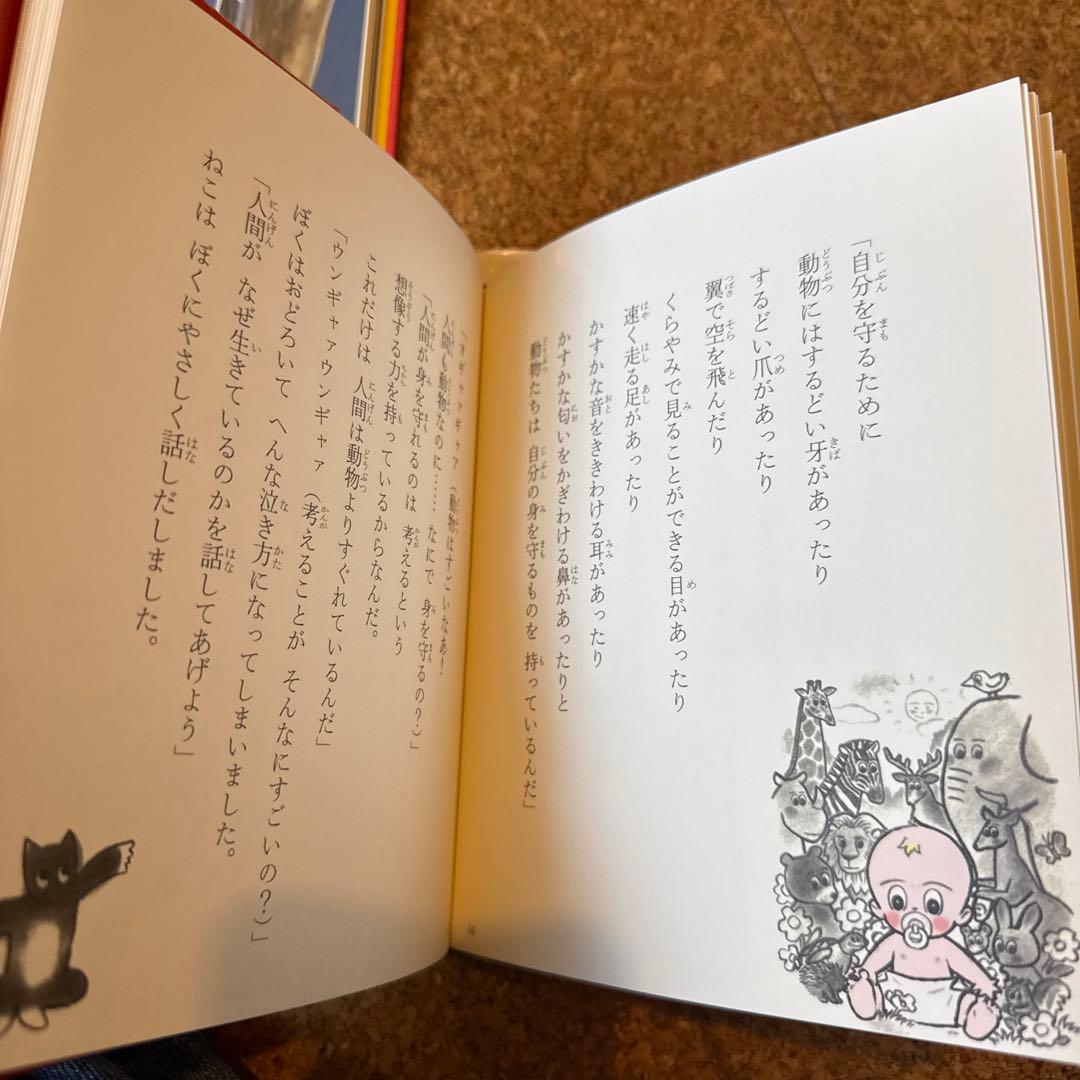 「自分を守るために
動物にはするどい牙があったり
するどい爪があったり
翼で空を飛んだり
くらやみで見ることができる目があったり
速く走る足があったり
かすかな音をききわける耳があったり
かすかな匂いをかぎわける鼻があったりと
動物たちは 自分の身を守るものを 持っているんだ」
16
「オギャァオギャァ（動物はすごいなあ！
人間も動物なのに…… なにで 身を守るの？）」
「人間が身を守れるのは 考えるという
想像する力を持っているからなんだ。
これだけは 人間は動物よりすぐれているんだ」
「ウンギャァウンギャァ（考えることが そんなにすごいの？）」
ぼくはおどろいて へんな泣き方になってしまいました。
「人間が なぜ生きているのかを話してあげよう」
ねこは ぼくにやさしく話しだしました。